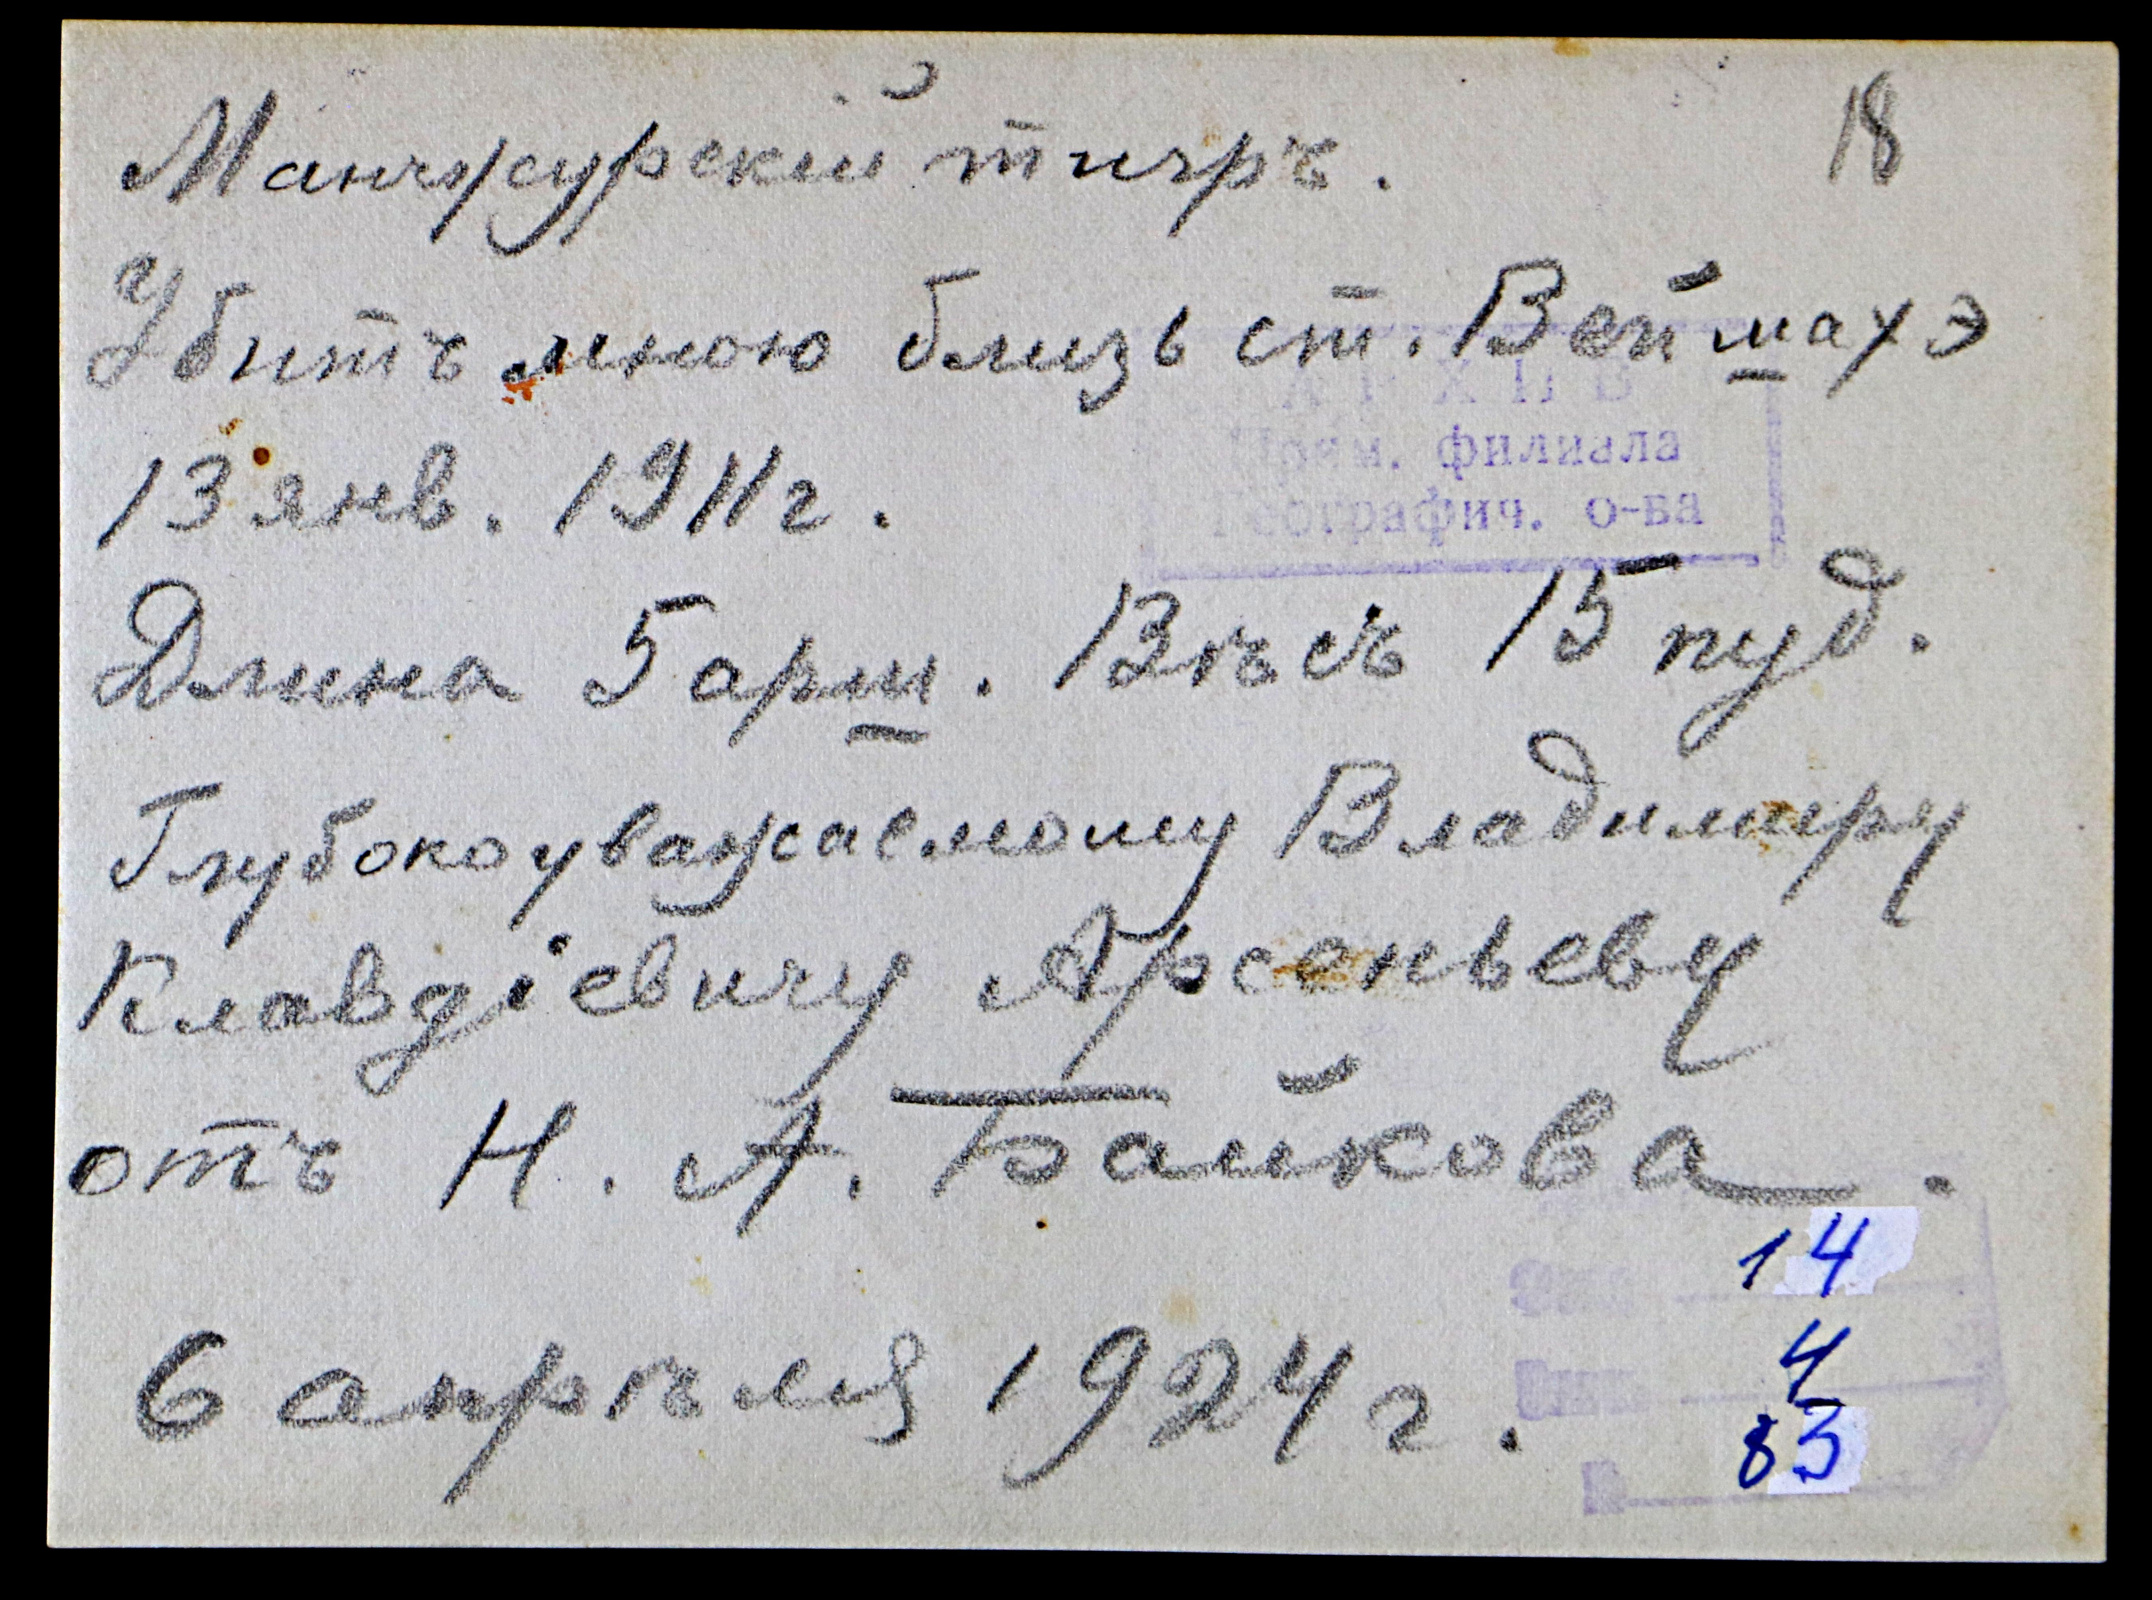 18
Манчжурскій тигръ.
Убитъ мною близь ст. Вейшахэ
13 янв. 1911 г.
Длина 5 арш. Вѣсъ 15 пуд.
Глубокоуважаемому Владимиру
Клавдіевичу Арсеньеву
отъ Н. А. Байкова.
6 апрѣля 1924 г.
АРХИВ
Прим. филиала
Географич. о-ва
14
4
83